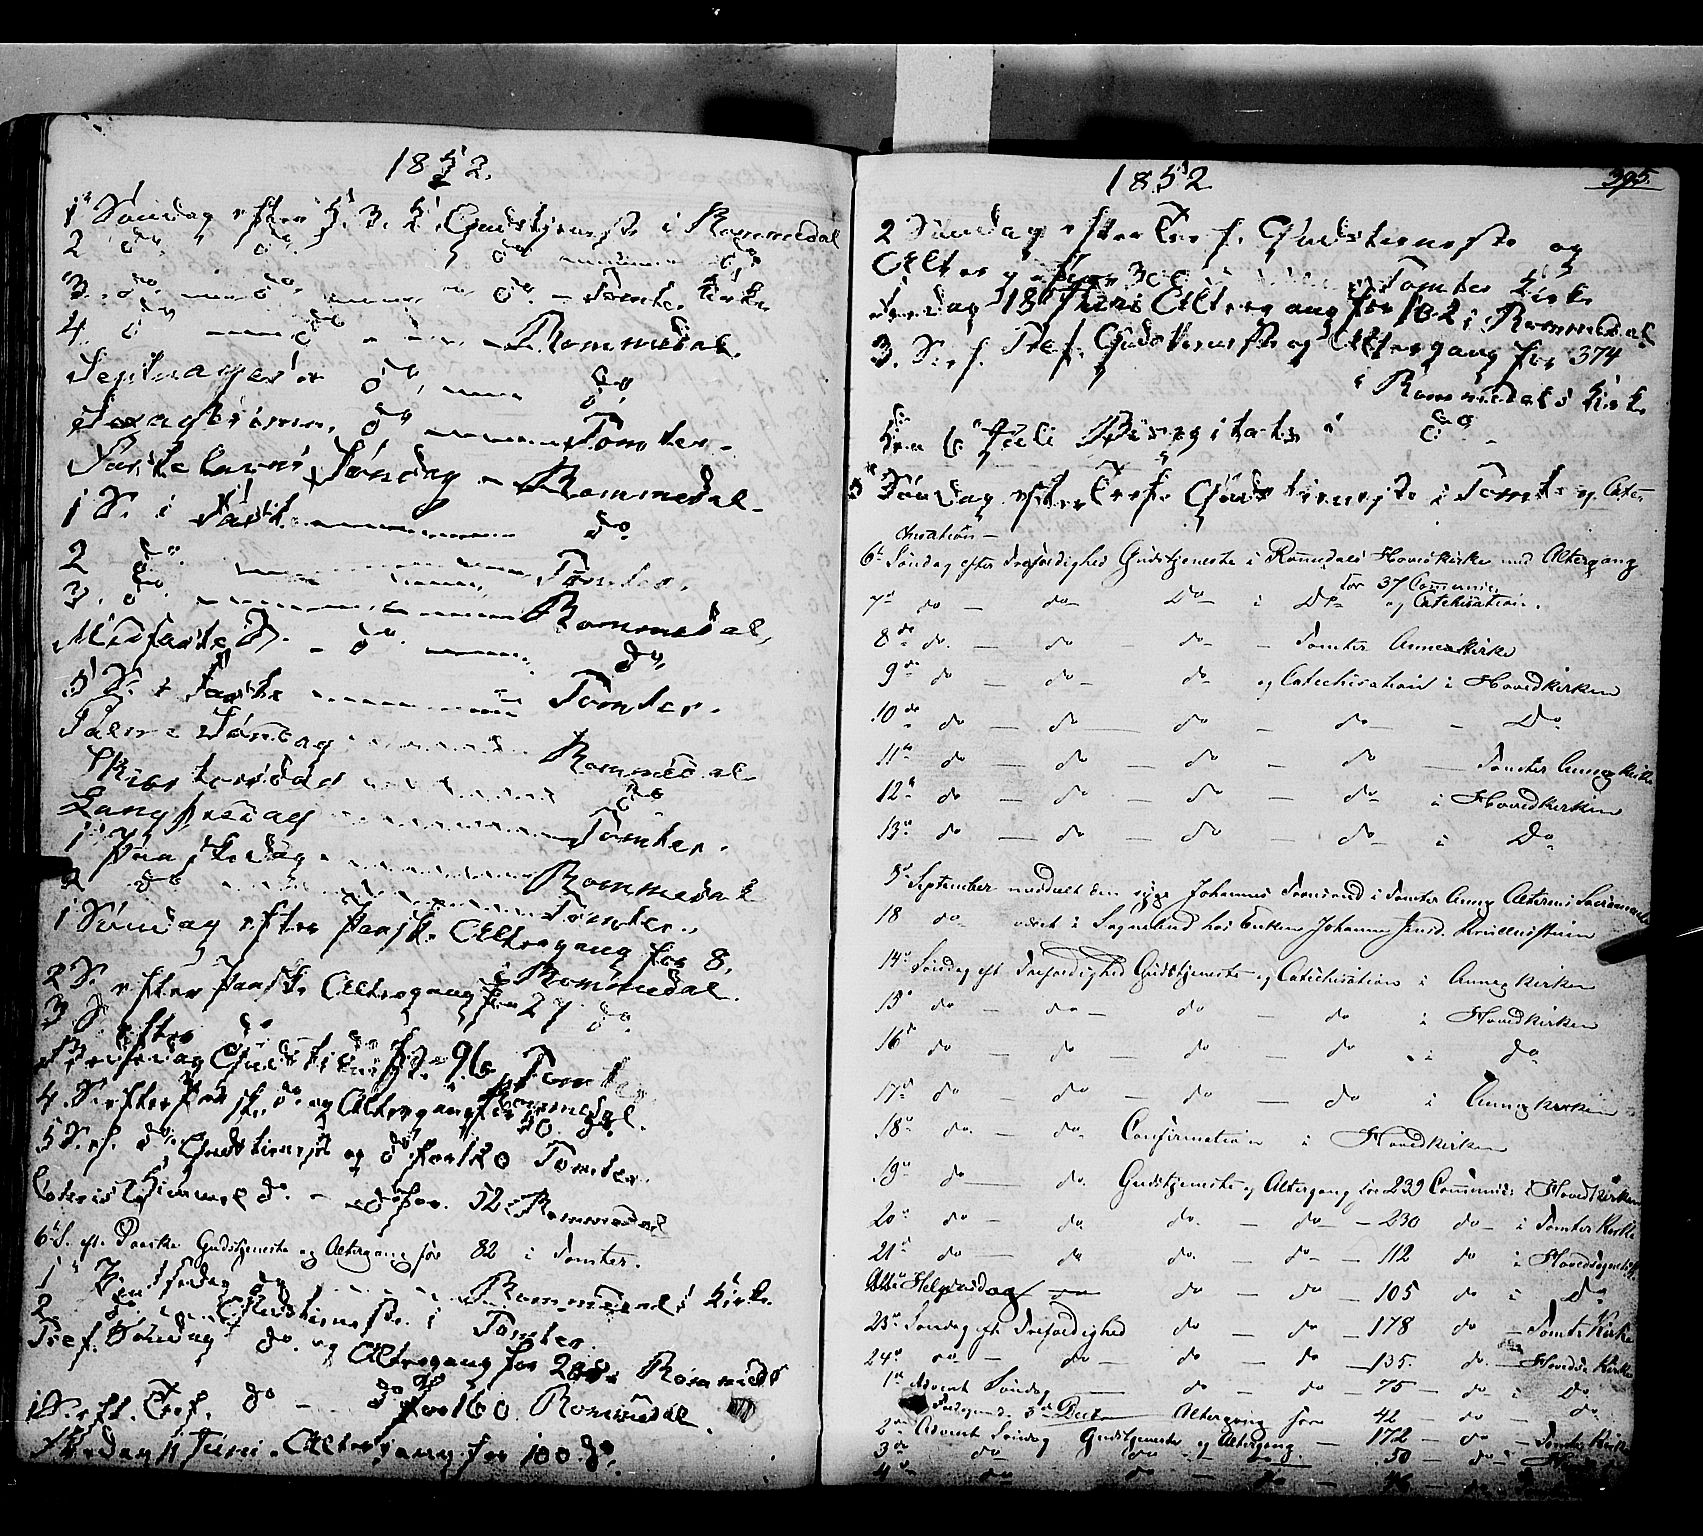 1852.
1ª Søndag efter H. 3. K. Gudstjeneste i Rommedal
2 do do do do
3. do do do – Tomter Kirke
4. do do – Rommedal.
Septuagesia do do
Sexagesima do Tomter.
Fastelavns Søndag – Rommedal.
1 S. i Fast. do
2 do Tomter.
3. do Rommedal,
Midfaste S. – do do,
5 S. i Faste Tomter.
Palme Søndag Rommedal
Skiertorsdag do
Langfredag Tomter.
1 Paaskedag Rommedal
2 do Tomter.
1 Søndag efter Paaske Altergang for 8.
i Rommedal.
2 S. efter Paaske Altergang for 27 do.
3 S efter do
Gudstieneste 96 Tomter
4. S. efter Paaske do. og Altergang for 50. Rommedal.
5 S. ef. do. Gudstieneste og do for 120 Tomter.
Christi Himmel do. – do for. 52 Rommedal
6ª S. ef. Paaske Gudstjeneste og Altergang for 82 i Tomter.
1ª Pindsedag do Rommedals Kirke
2 do Gudstieneste i Tomter.
Tref. Søndag do. og Altergang for 208. Rommedal
1 S. eft. Tref. do – do for 160 Rommedal
Fredag 11 Juni. Altergang for 100 do.
1852
395.
2 Søndag efter Tref. Gudstieneste og
Altergang for 300 Tomter Kirke
Fredag 18 Juni Altergang for 182 i Rommedal
3. S. ef. Tref. Gudstieneste og Altergang for 374
i Rommedals Kirke
6 Juli Bispevisitats i do
5 Søndag efter Tref. Gudstieneste i Tomter og Cate-
chisation –
6ª Søndag efter Trefoldighed Gudstjeneste i Romedals Hovedkirke med Altergang
for 37 Communic.
7ª do – do – Do – i Do – og Catechisation.
8de do. – do – do – Tomter Annexkirke
9de do – do – do og Catechisation i Hovedkirken
10de do – do do do – – Do
11ª do – do – do – do – Tomter Annexkirke
12ª do – do – do – do – i Hovedkirken
13ª do – do – do – do i Do
5ª September meddeelt den syge Johannes i Tomter Annex Alterens Sacramente
18 do i Sognebud hos Enken Johanne
14ª Søndag eft Trefoldighed Gudstjeneste og Catechisation i Annexkirken
15ª do – do – do – do i Hovedkirken
16ª do – do – do – do i do
17ª do – do – do – do i Annexkirken
18ª do. – do. Confirmation i Hovedkirken
19ª do – do. Gudstjeneste og Altergang for 239 Commun: i Hovedkirken
20ª do – do do. – do – 230 do – i Tomter Kirke
21ª do – do do – do – 112 do i Hovedsognets
Alle Helgensdag do – do – 105 do i Do
23ª Søndag eft Trefoldighed do – do – 178 do – Tomter Kirke
24ª do – do – do – do – 135. do. – Hoveds Kirke
1ª Advent Søndag – do – do – 75 – do i Do
3d Decb Altergang for 42 – do – do
2den Advent Søndag Gudstjeneste og Altergang – 172 – do – Tomter Kirke
3de do do – do – 50 – do
4ª do do – do – 46 – do